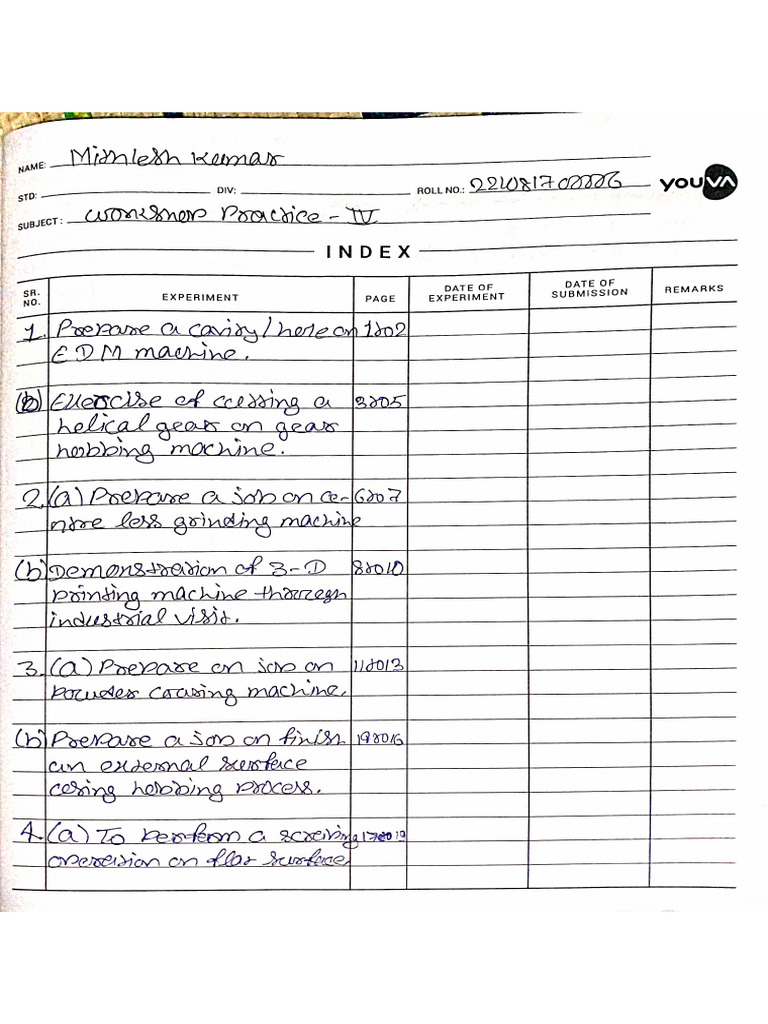 NAME: Mishlesh Kumar
STD: DIV: ROLL NO.: youVA
SUBJECT: Workshop Practice - IV
INDEX
SR. NO. EXPERIMENT PAGE DATE OF EXPERIMENT DATE OF SUBMISSION REMARKS
1. Prepare a cavity/hole on 1to2
EDM machine.
(b) Exercise of cutting a 3to5
helical gear on gear
hobbing machine.
2. (a) Prepare a job on ce- 6to7
ntre less grinding machine
(b) Demonstration of 3-D 8to10
printing machine through
industrial visit.
3. (a) Prepare on job on 11to13
Powder coating machine.
(b) Prepare a job on finish to16
an external surface
using hobbing process.
4. (a) To perform a scraping 17to19
operation on flat surface